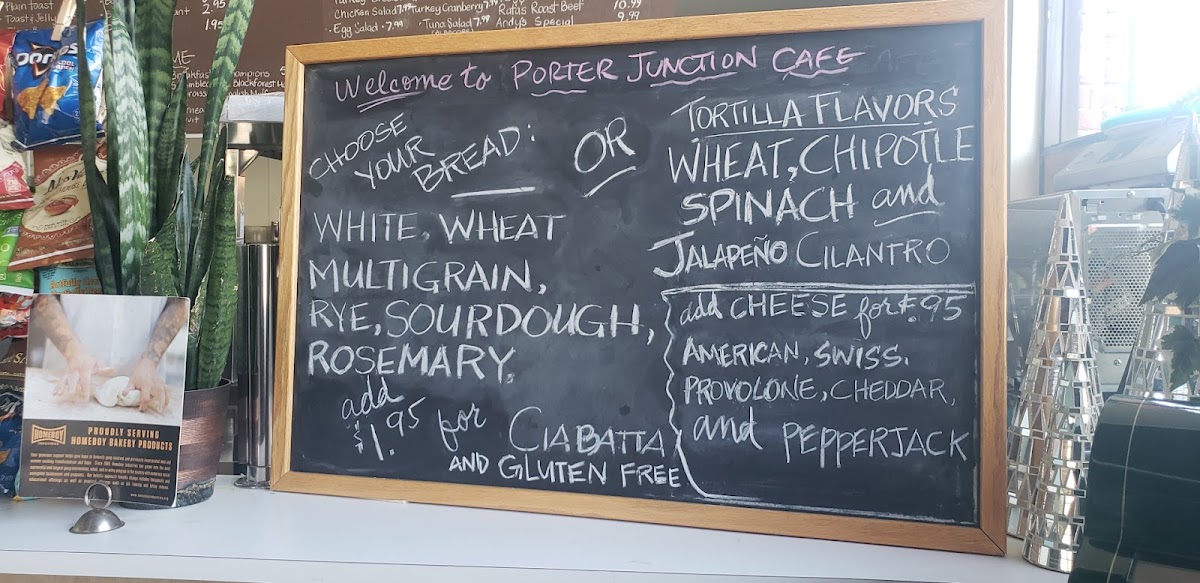 Plain toast
Toast & Jelly
2.95
1.95
Chicken Salad 7.99
Turkey Cranberry 7.99
Rafas Roast Beef 10.99
Egg Salad 7.99
Tuna Salad 7.99
Andy's Special 9.99
Welcome to PORTER JUNCTION CAFE
CHOOSE
YOUR
BREAD:
OR
WHITE, WHEAT
MULTIGRAIN,
RYE, SOURDOUGH,
ROSEMARY,
add
$1.95 for CIABATTA
AND GLUTEN FREE
TORTILLA FLAVORS
WHEAT, CHIPOTLE
SPINACH and
JALAPEÑO CILANTRO
add CHEESE for $.95
AMERICAN, SWISS,
PROVOLONE, CHEDDAR,
and PEPPERJACK
HOMEBOY
PROUDLY SERVING
HOMEBOY BAKERY PRODUCTS